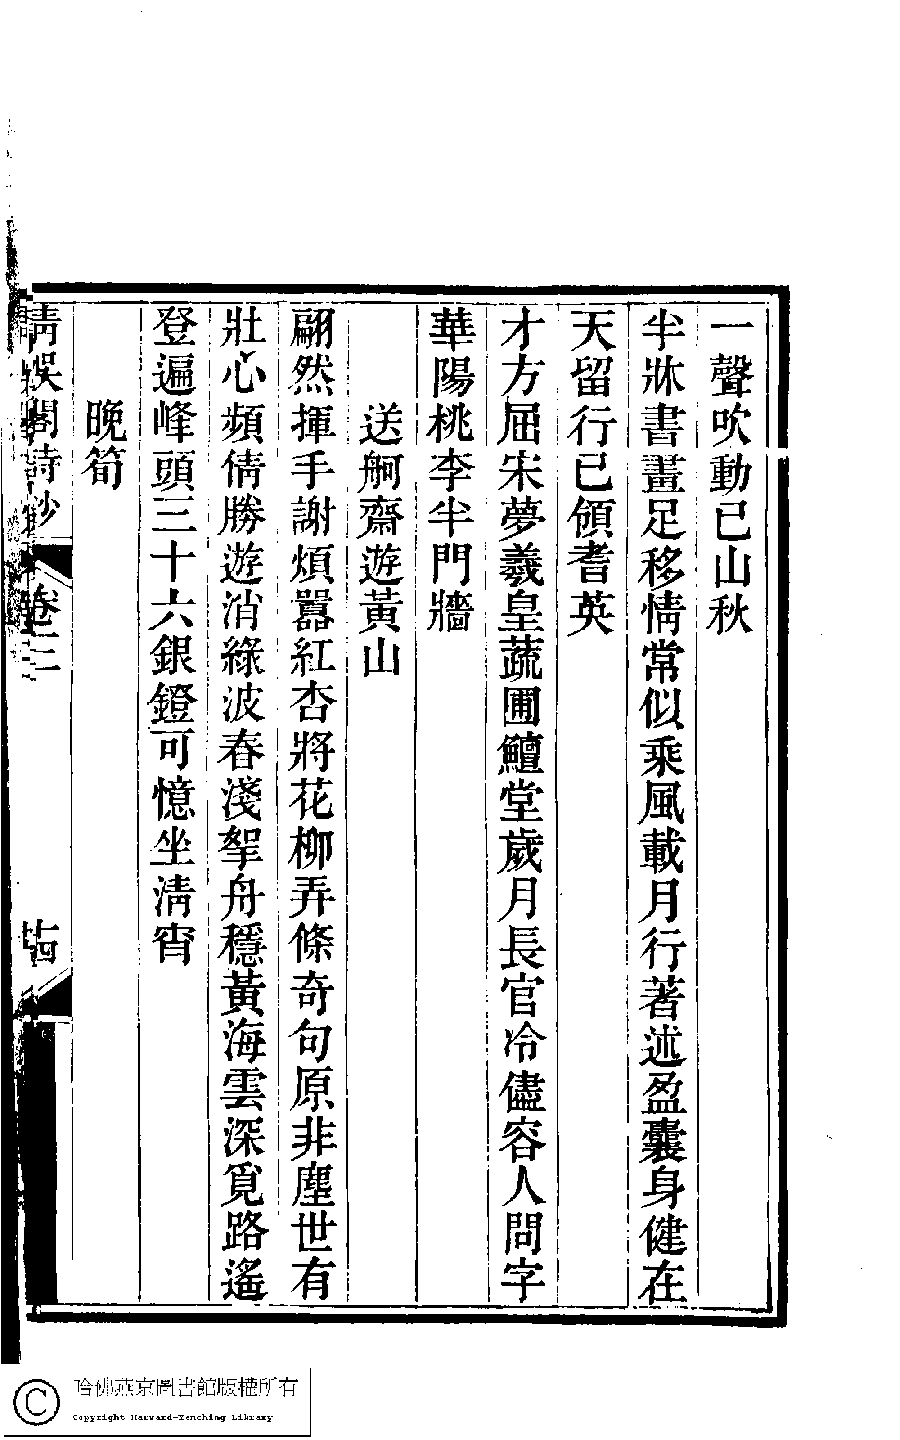 一聲吹動已山秋
半牀書畫足移情常似乘風載月行著述盈囊身健在
天留行已領耆英
才方屈宋夢羲皇蔬圃鱣堂歲月長官冷儘容人問字
華陽桃李半門牆
送舸齋遊黃山
翩然揮手謝煩囂紅杏將花柳弄條奇句原非塵世有
壯心頻倩勝遊消綠波春淺拏舟穩黃海雲深覓路遙
登遍峰頭三十六銀鐙可憶坐淸宵
晚筍
詩鈔 卷三
哈佛燕京圖書館版權所有
Copyright Harvard-Yenching Library